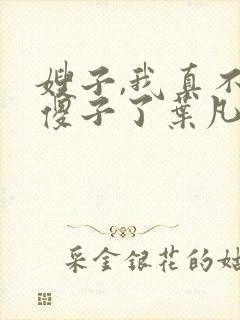 嫂子,我真不
傻子了葉凡
采金銀花的姑